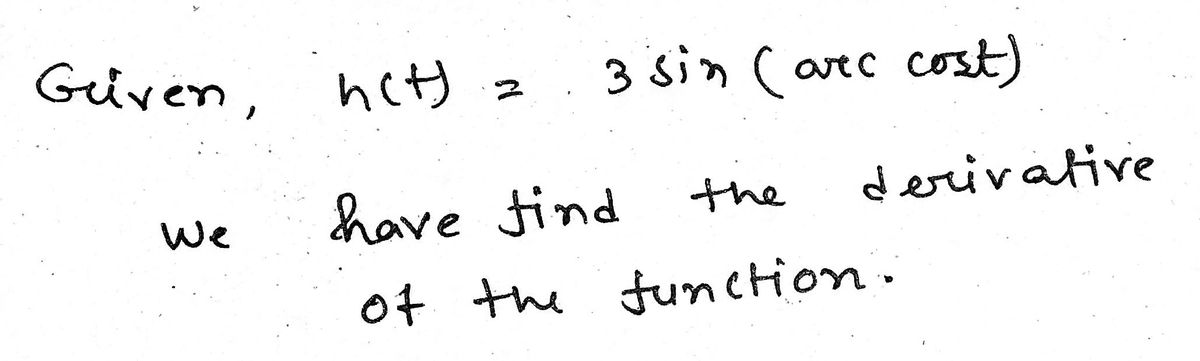 Given, h(t) = 3 sin (arc cost)
We have find the derivative
of the function.